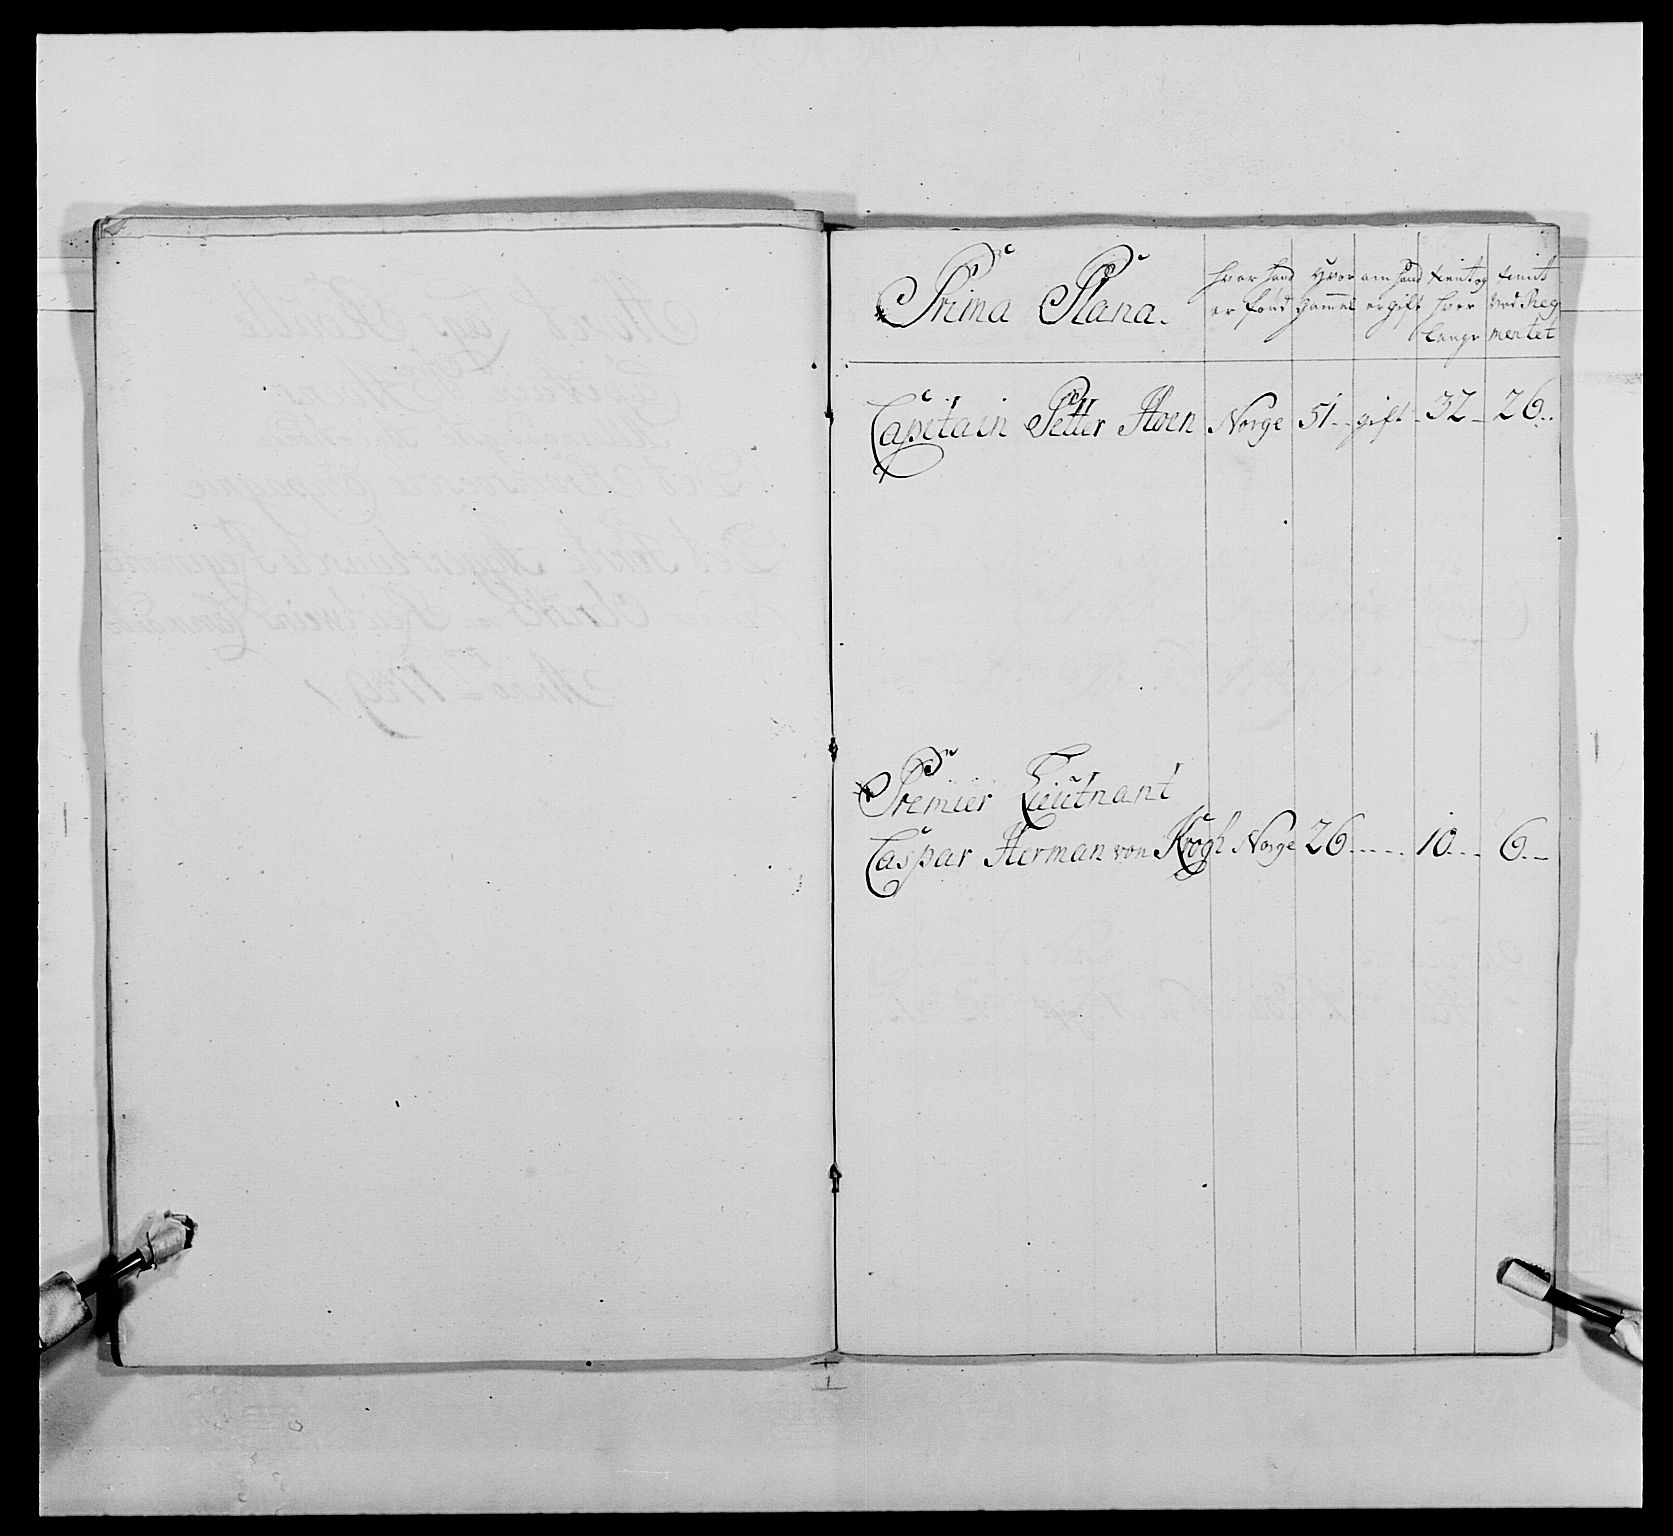 Prima Plana.
hvor hand er född
Hvor gammel
om hand er gift
tient og hvor lenge
tient ved Regmentet
Capitain Petter Hoen Norge 51 gift 32 26
Premier Lieutnant
Caspar Herman von Krogh Norge 26 10 6